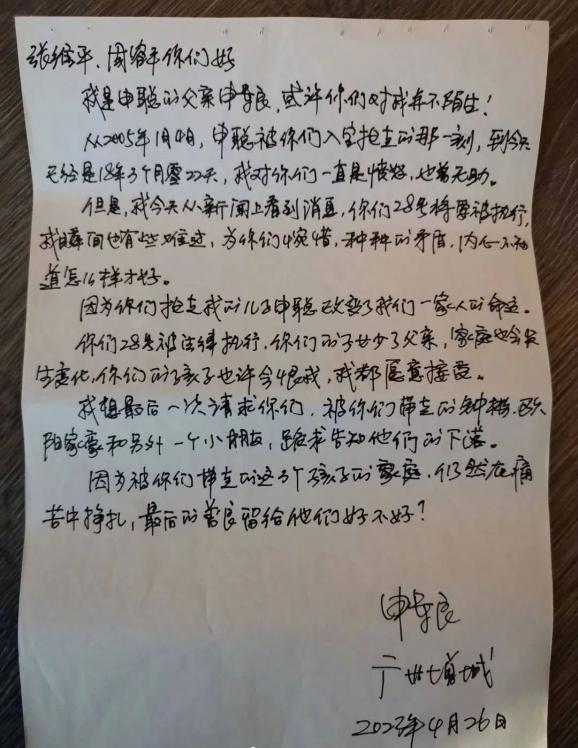 张维平、周容平你们好
我是申聪的父亲申军良，或许你们对我并不陌生！
从2005年1月4日，申聪被你们入室抢走的那一刻，到今天
已经是18年3个月零22天，我对你们一直是愤怒，也曾无助。
但是，我今天从新闻上看到消息，你们28号将要被执行，
我瞬间也有些难过，为你们惋惜，种种的矛盾，内心不知
道怎么样才好。
因为你们抢走我的儿子申聪改变了我们一家人的命运。
你们28号被法律执行，你们的子女少了父亲，家庭也会发
生变化，你们的孩子也许会恨我，我都愿意接受。
我想最后一次请求你们，被你们带走的钟彬、欧
阳家豪和另外一个小朋友，跪求告知他们的下落。
因为被你们带走的这3个孩子的家庭，仍然在痛
苦中挣扎，最后的善良留给他们好不好？
申军良
广州增城
2023年4月26日